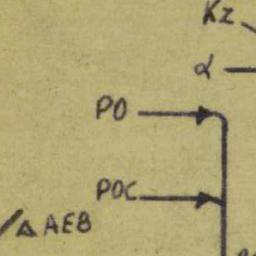 Kz
α
PO
POC
Δ AEB